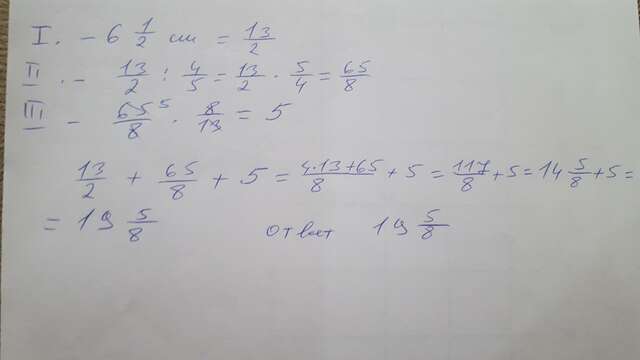 I. - 6 1/2 см = 13/2
II. - 13/2 : 4/5 = 13/2 · 5/4 = 65/8
III - 65⁵/8 · 8/13 = 5
13/2 + 65/8 + 5 = (4·13+65)/8 + 5 = 117/8 + 5 = 14 5/8 + 5 =
= 19 5/8 ответ 19 5/8